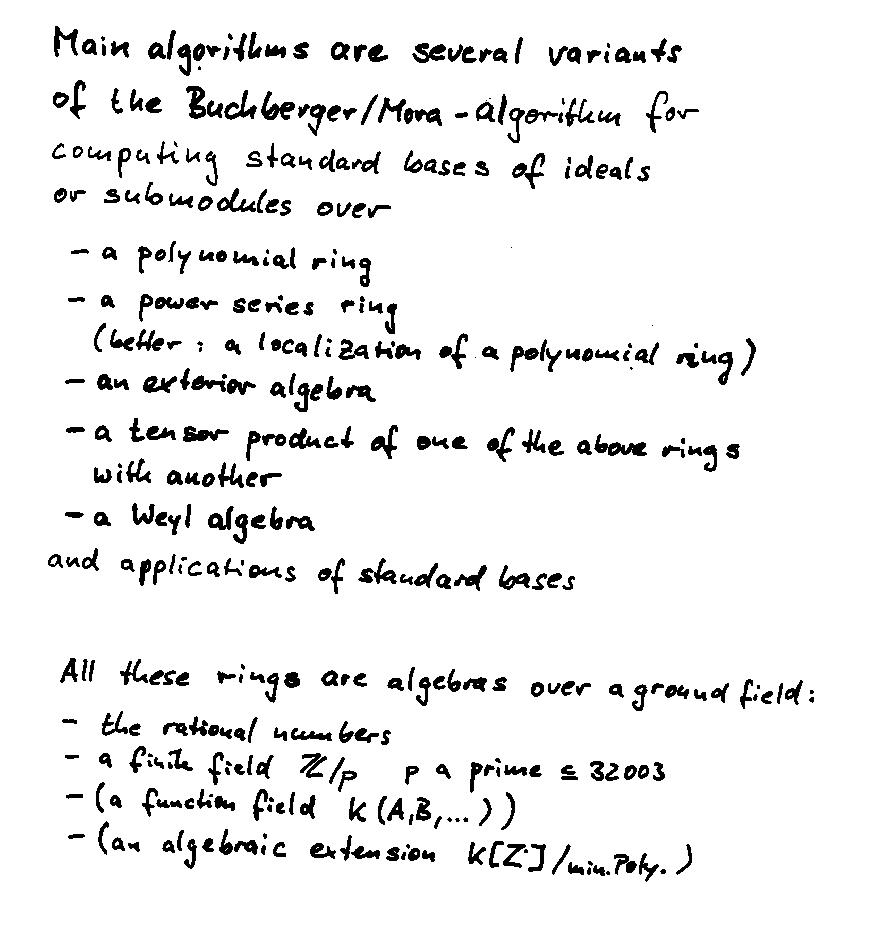 Main algorithms are several variants
of the Buchberger/Mora-algorithm for
computing standard bases of ideals
or submodules over
- a polynomial ring
- a power series ring
(better: a localization of a polynomial ring)
- an exterior algebra
- a tensor product of one of the above rings
with another
- a Weyl algebra
and applications of standard bases
All these rings are algebras over a ground field:
- the rational numbers
- a finite field ℤ/p p a prime ≤ 32003
- (a function field K(A,B,...))
- (an algebraic extension K[Z]/min.Poly.)